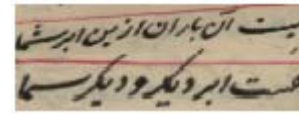 نیست آن باران ازین ابر شما
هست ابر دیگر و دیگر سما